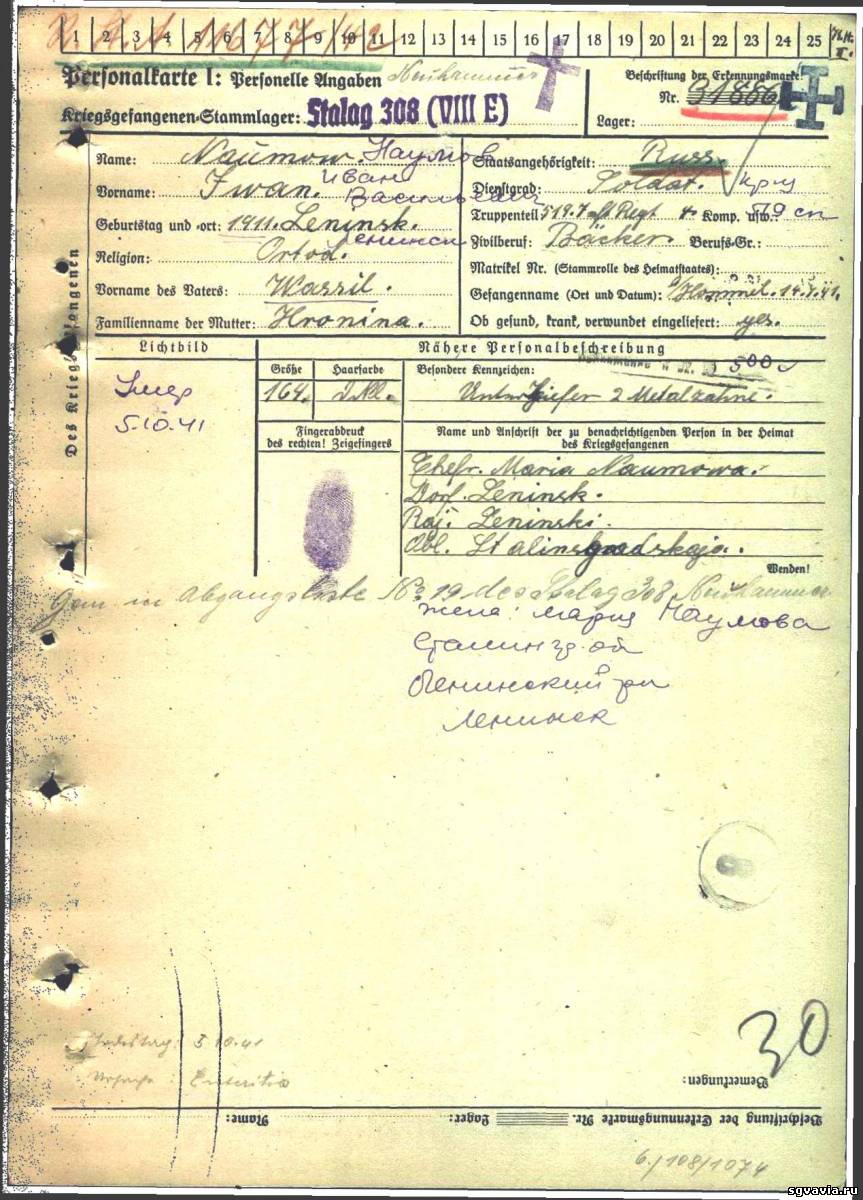 1 2 3 4 5 6 7 8 9 10 11 12 13 14 15 16 17 18 19 20 21 22 23 24 25
Personalkarte I: Personelle Angaben Neuhammer
Beschriftung der Erkennungsmarke
Nr. 31886
Kriegsgefangenen-Stammlager: Stalag 308 (VIII E)
Lager:
Des Kriegsgefangenen
Name: Naumow. Наумов
Vorname: Iwan. Иван Васильевич
Geburtstag und -ort: 1911. Leninsk. Ленинск
Religion: Ortod.
Vorname des Vaters: Wassil.
Familienname der Mutter: Hronina.
Staatsangehörigkeit: Russ.
Dienstgrad: Soldat. кр-ц
Truppenteil 519. Regt Komp. usw.: 519 сп
Zivilberuf: Bäcker. Berufs-Gr.:
Matrikel Nr. (Stammrolle des Heimatstaates):
Gefangennahme (Ort und Datum): 14.7.41.
Ob gesund, krank, verwundet eingeliefert: ges.
Lichtbild
Nähere Personalbeschreibung
Größe
Haarfarbe
Besondere Kennzeichen:
164.
Unterkiefer 2 Metalzähne.
Умер
5.10.41
Fingerabdruck
des rechten! Zeigefingers
Name und Anschrift der zu benachrichtigenden Person in der Heimat
des Kriegsgefangenen
Ehefr. Maria Naumowa.
Dorf. Leninsk.
Raj. Leninski.
Obl. Stalingradskaja.
Wenden!
Gem. in Abgangsliste No 19 des Stalag 308 Neuhammer
жена: Мария Наумова
Сталингр. об
Ленинский р-н
Ленинск
30
Todestag: 5.10.41
Ursache: Enteritis
Bemerkungen:
Beschriftung der Erkennungsmarke Nr. Lager: Name:
6./108/1074
sgvavia.ru